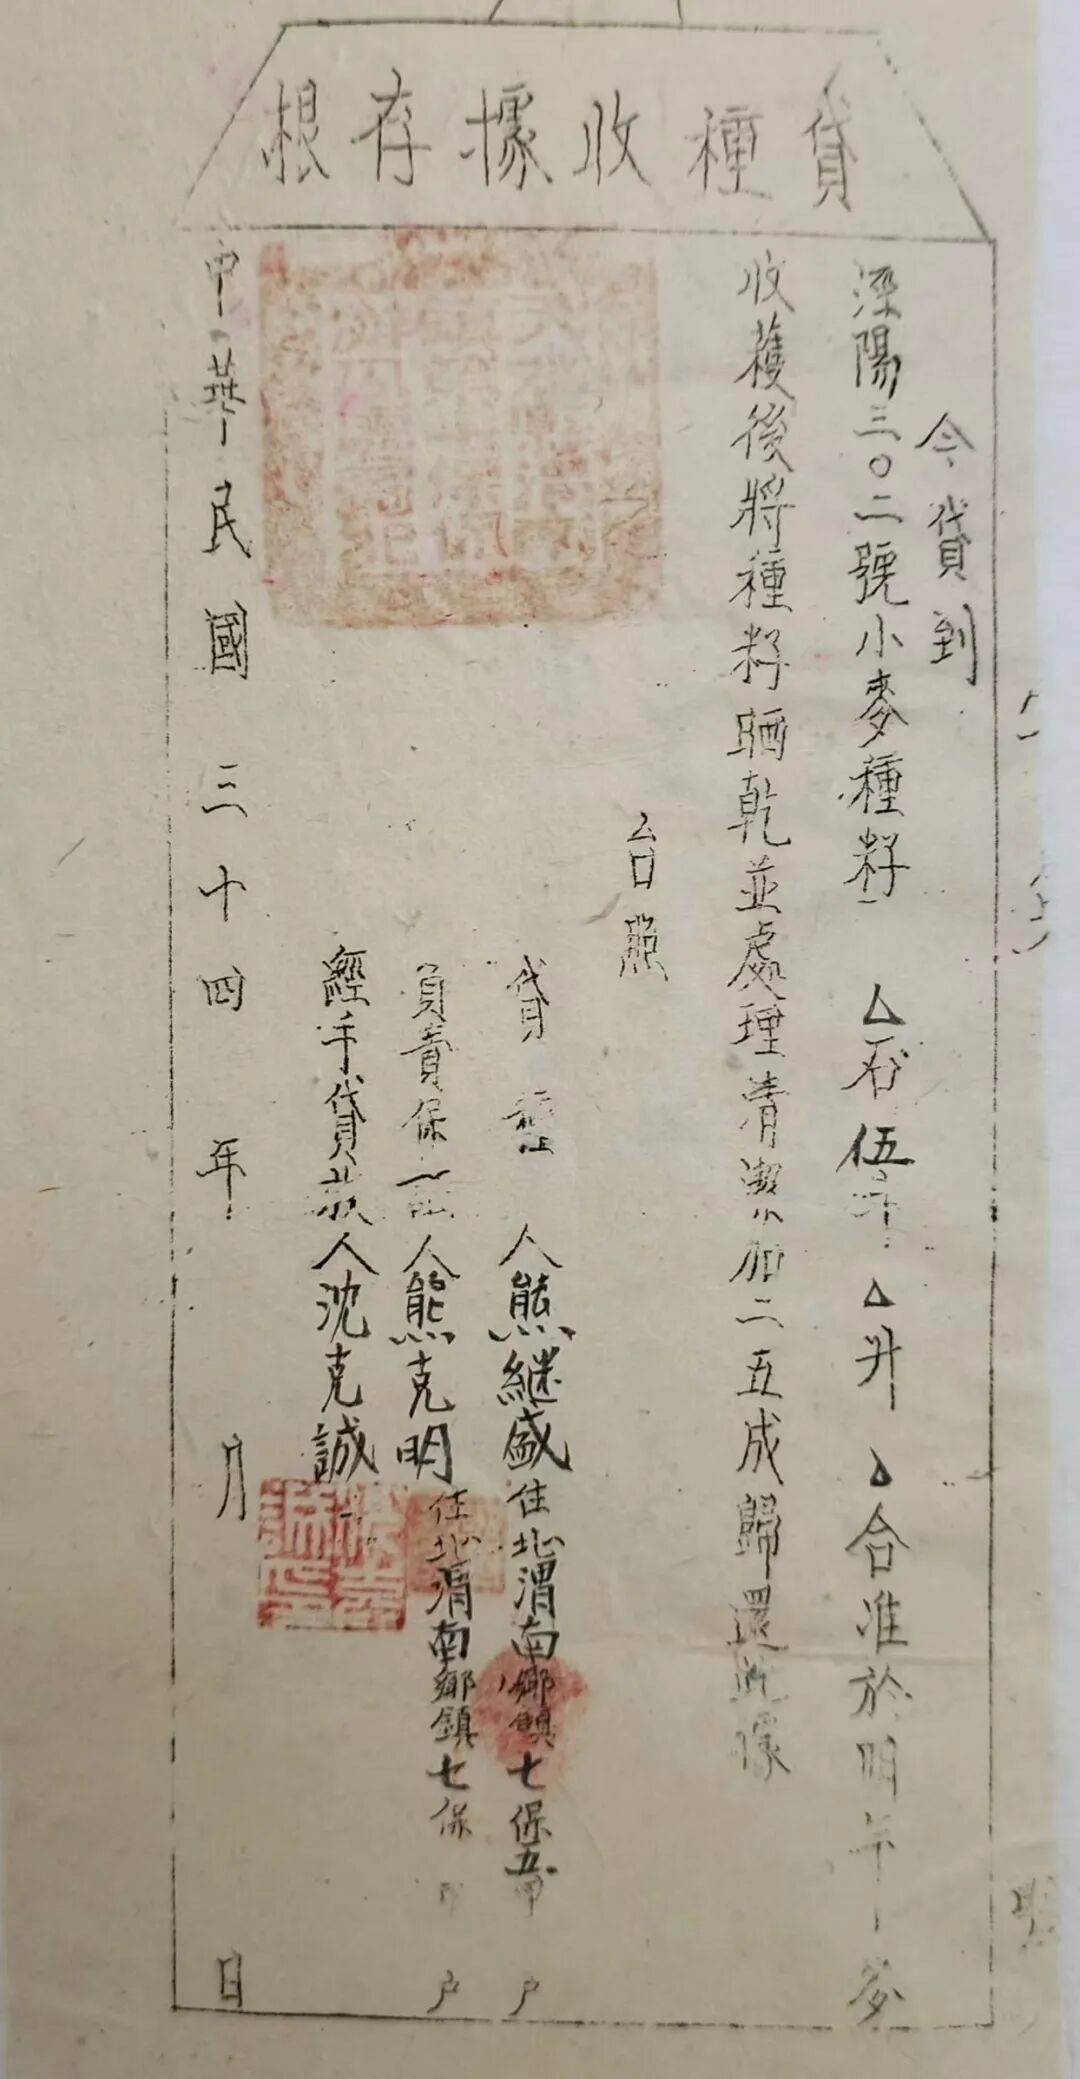 貸種收據存根
今貸到
涇陽三〇二號小麥種籽 △石伍斗△升△合准於明年麥
收穫後將種籽晒乾並處理清潔加二五成歸還此據
台照
貸種人熊継盛住北渭南鄉鎮七保五甲 户
負責保證人熊克明住北渭南鄉鎮七保 甲 户
經手貸放人沈克誠
中華民國三十四年 月 日